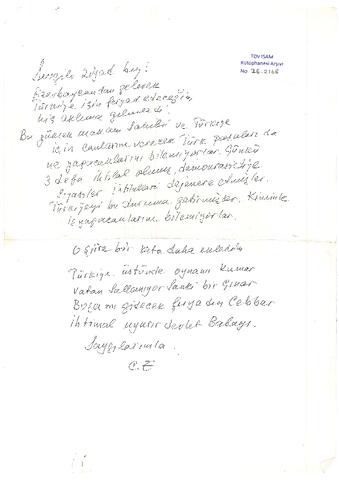 TDV İSAM
Kütüphanesi Arşivi
No 2E-2168
Sevgili Ziyad bey!
Azerbaycandan gelerek
Türkiye için feryad edeceğin
hiç aklıma gelmezdi.
Bu yüksek makam sahibi ve Türkiye
için canlarını verecek Türk paşaları da
ne yapacaklarını bilemiyorlar. Çünkü
3 defa ihtilal olumuş, demokrasi diye
Siyasiler ihtilalleri dejenere etmişler.
Türkiyeyi bu duruma getirmişler. Kiminle
ne yapacaklarını bilemiyorlar.
O şiire bir kıta daha ekledim
Türkiye üstünde oynanı kumar
Vatan sallanıyor sanki bir çınar
Boşa mı gidecek feryadın Cebbar
ihtimal uyur Devlet Babası.
Saygılarımla.
C. E